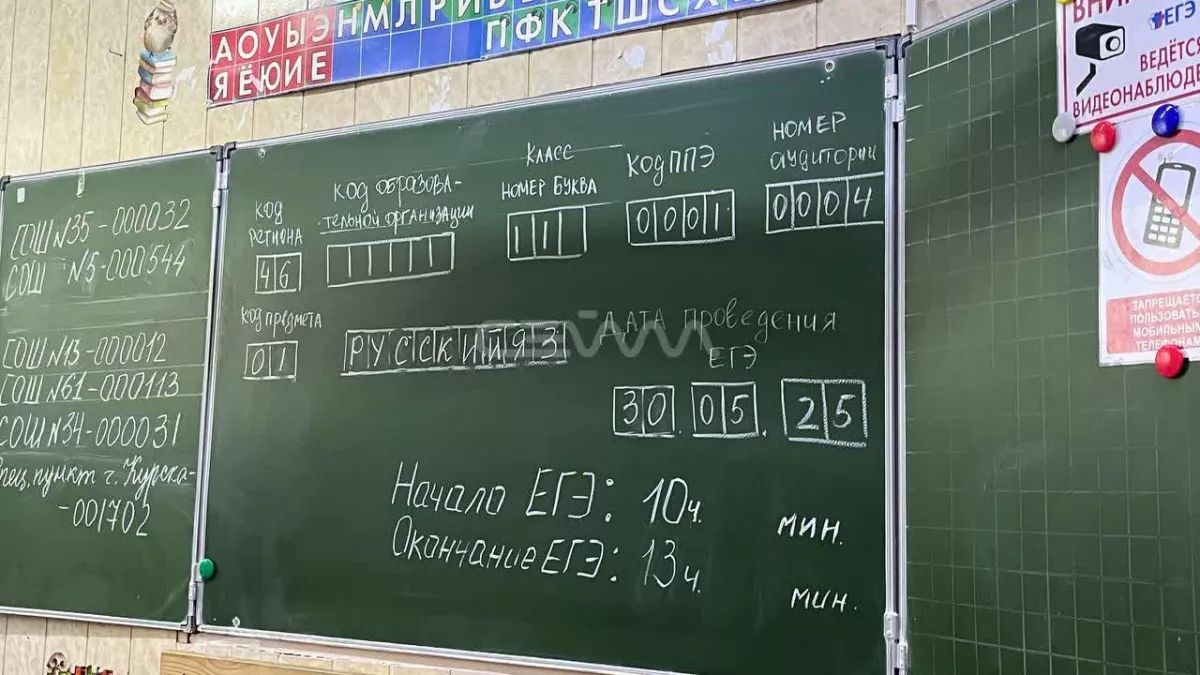 АОУЫЭНМЛРЙ
ЯЁЮИЕ ПФКТШСХ
СОШ №35-000032
СОШ №5-001544
СОШ №13-000012
СОШ №61-000113
СОШ №34-000031
Спец. пункт г. Курска-
-001702
КОД
РЕГИОНА
46
КОД ОБРАЗОВА-
ТЕЛЬНОЙ ОРГАНИЗАЦИИ
КЛАСС
НОМЕР БУКВА
11
КОД ППЭ
0001
НОМЕР
АУДИТОРИИ
0004
КОД ПРЕДМЕТА
01
РУССКИЙ ЯЗ
СЕЙМ
ДАТА ПРОВЕДЕНИЯ
ЕГЭ
30.05.25
Начало ЕГЭ: 10ч. мин.
Окончание ЕГЭ: 13ч. мин.
ЕГЭ
ВЕДЁТСЯ
ВИДЕОНАБЛЮДЕ
ЗАПРЕЩАЕТС
ПОЛЬЗОВАТЬ
МОБИЛЬНЫМ
ТЕЛЕФОНАМ